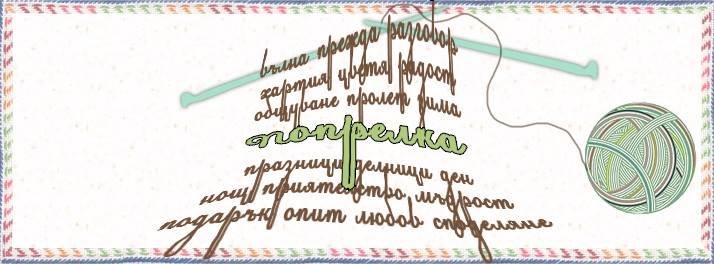 вълна прежда разговор
хартия цветя радост
общуване пролет зима
попрелка
празници делници ден
нощ приятелство мъдрост
подарък опит любов споделяне